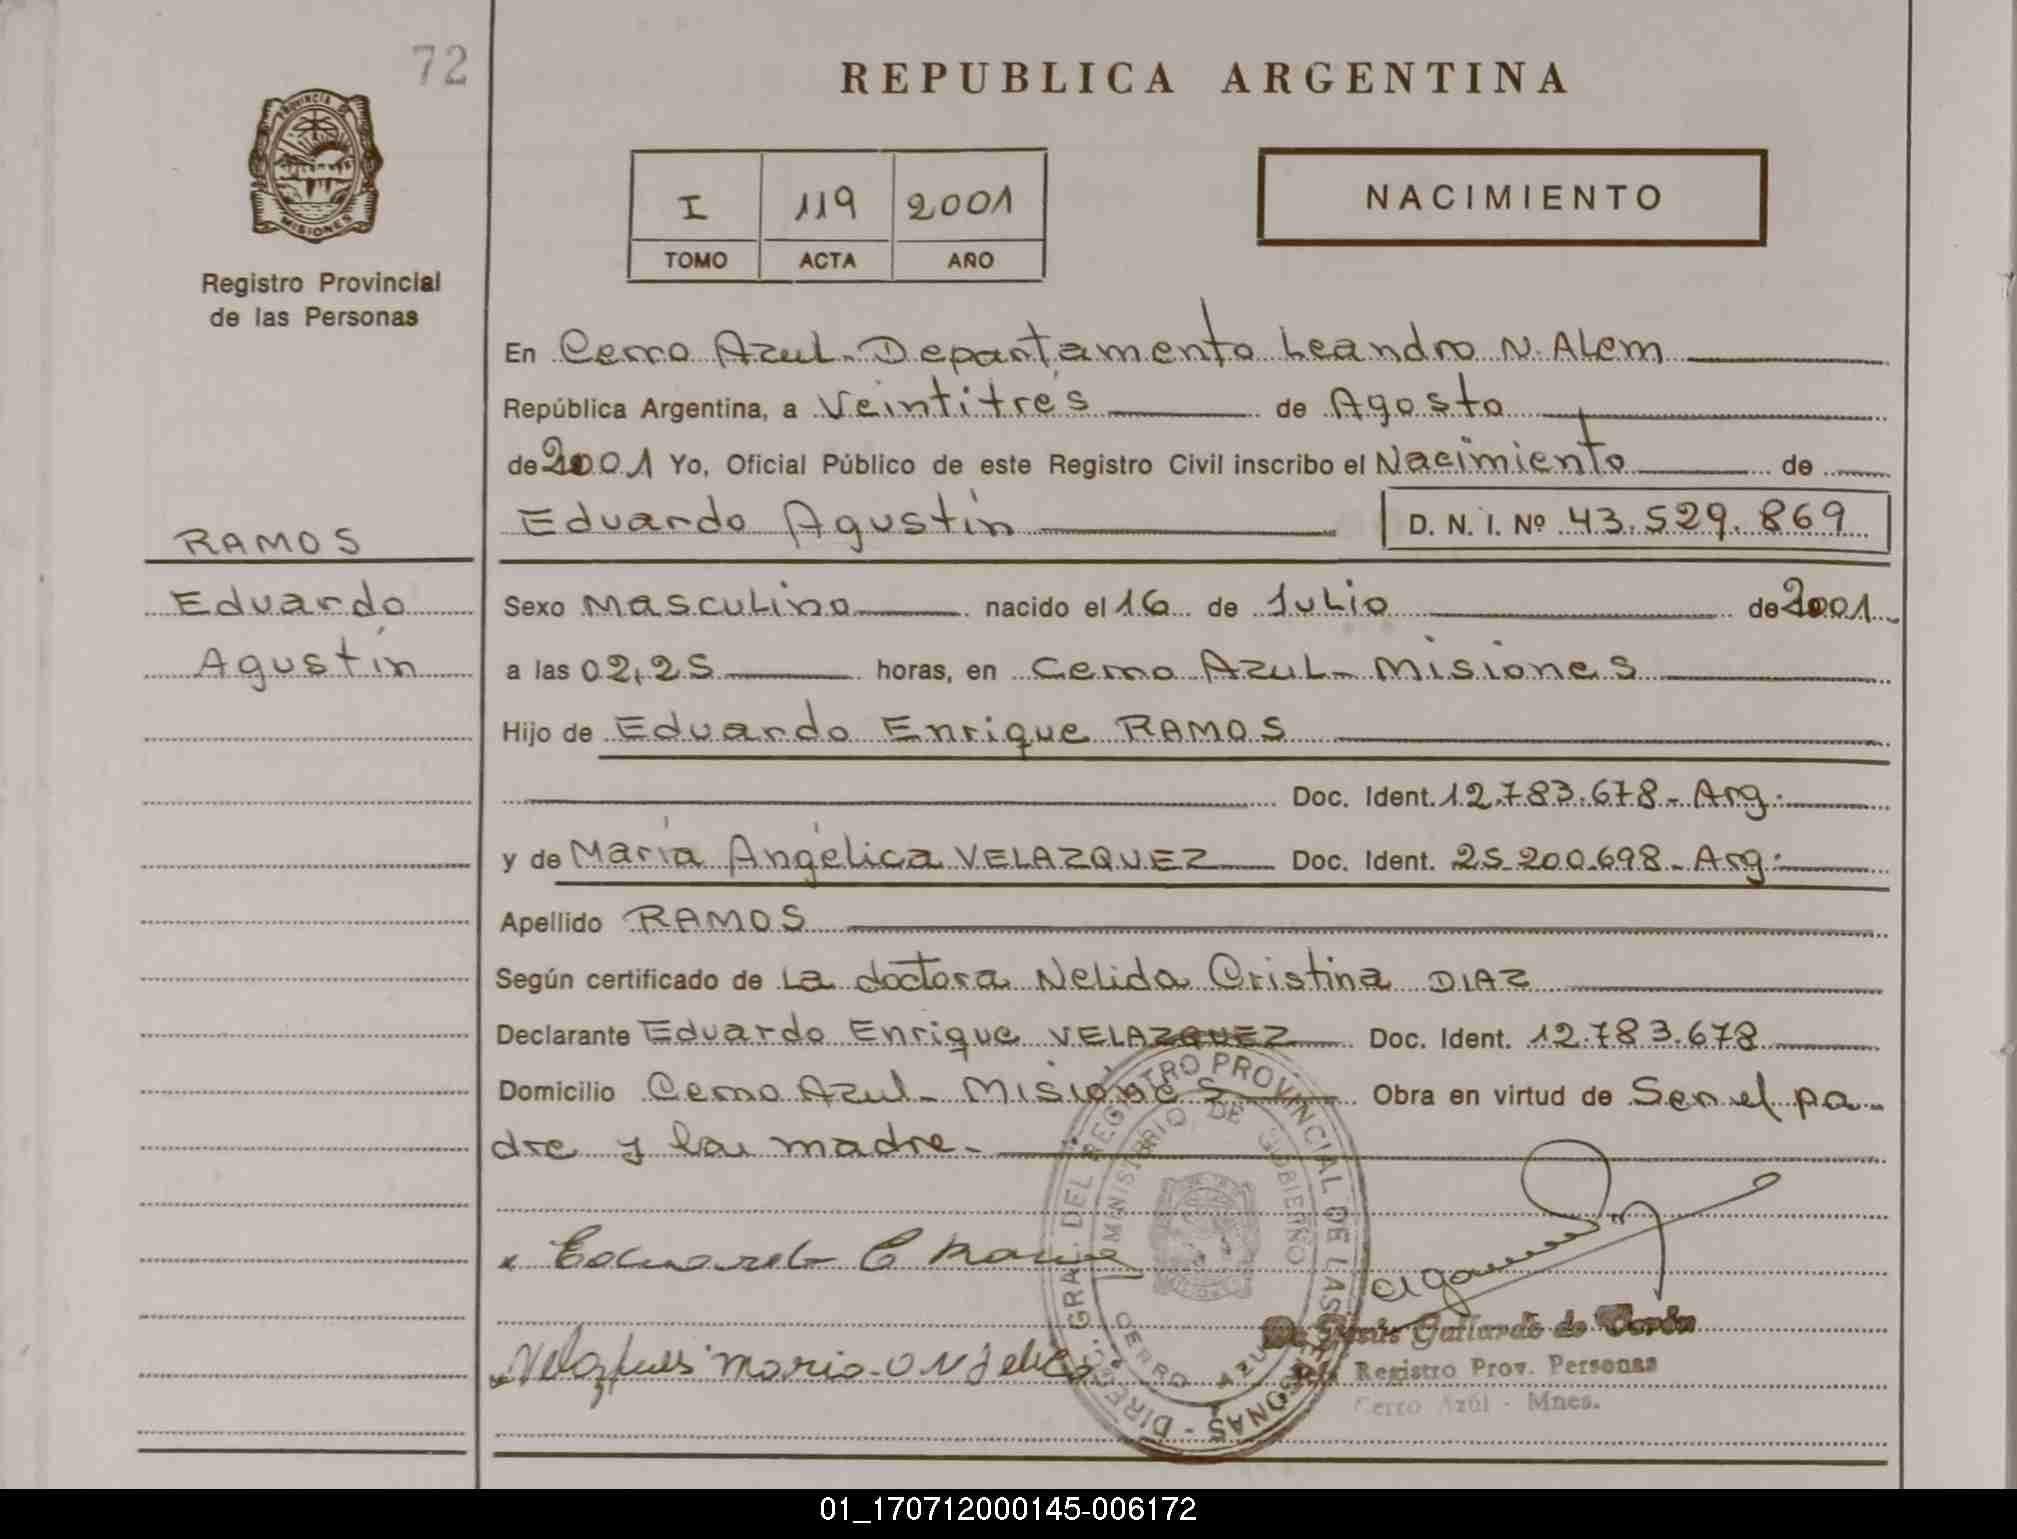 72
REPUBLICA ARGENTINA
PROVINCIA DE
MISIONES
Registro Provincial
de las Personas
I 119 2001
TOMO ACTA AÑO
NACIMIENTO
En Cerro Azul - Departamento Leandro N. Alem
República Argentina, a Veintitrés de Agosto
de 2001 Yo, Oficial Público de este Registro Civil inscribo el Nacimiento de
Eduardo Agustín D. N. I. Nº 43.529.869
RAMOS
Eduardo
Agustín
Sexo Masculino nacido el 16 de Julio de 2001
a las 02,25 horas, en Cerro Azul - Misiones
Hijo de Eduardo Enrique RAMOS
Doc. Ident. 12.783.678 - Arg.
y de María Angélica VELAZQUEZ Doc. Ident. 25.200.698 - Arg.
Apellido RAMOS
Según certificado de La doctora Nelida Cristina DIAZ
Declarante Eduardo Enrique VELAZQUEZ Doc. Ident. 12.783.678
Domicilio Cerro Azul - Misiones Obra en virtud de Ser el pa-
dre y la madre.-
DIREC. GRAL. DEL REGISTRO PROVINCIAL DE LAS PERSONAS
MINISTERIO DE GOBIERNO
CERRO AZUL
Eduardo E Ramos
Gallardo de
Registro Prov. Personas
Cerro Azúl - Mnes.
01_170712000145-006172